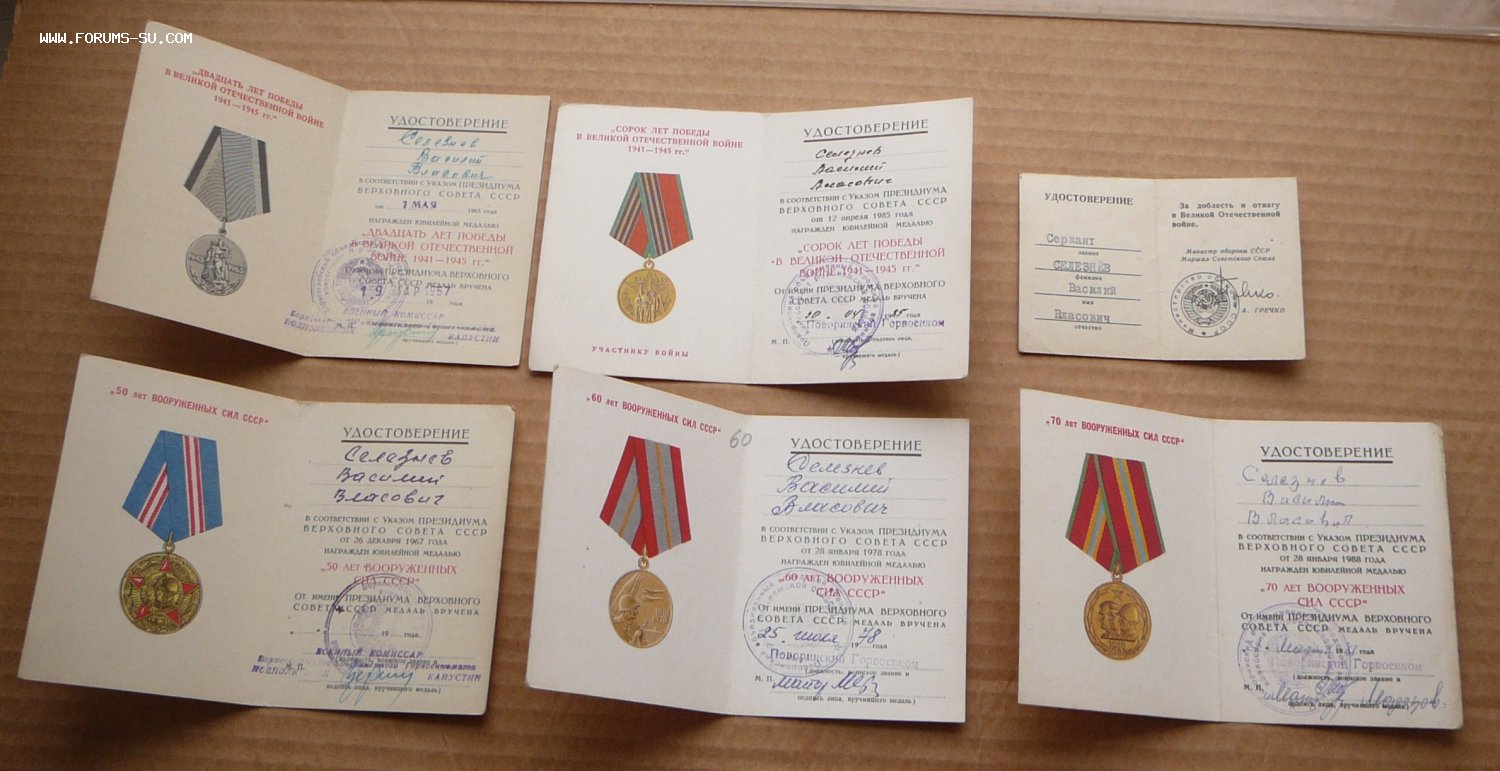 WWW.FORUMS-SU.COM
„ДВАДЦАТЬ ЛЕТ ПОБЕДЫ
В ВЕЛИКОЙ ОТЕЧЕСТВЕННОЙ ВОЙНЕ
1941—1945 гг.“
УДОСТОВЕРЕНИЕ
Селезнев
Василий
Власович
В СООТВЕТСТВИИ С УКАЗОМ ПРЕЗИДИУМА
ВЕРХОВНОГО СОВЕТА СССР
от 7 МАЯ 1965 года
НАГРАЖДЕН ЮБИЛЕЙНОЙ МЕДАЛЬЮ
„ДВАДЦАТЬ ЛЕТ ПОБЕДЫ
В ВЕЛИКОЙ ОТЕЧЕСТВЕННОЙ
ВОЙНЕ 1941—1945 гг.“
От имени ПРЕЗИДИУМА ВЕРХОВНОГО
СОВЕТА СССР МЕДАЛЬ ВРУЧЕНА
19 МАР 1967
19 года
ВОЕННЫЙ КОМИССАР
М. П.
КАПУСТИН
вручившего медаль)
„СОРОК ЛЕТ ПОБЕДЫ
В ВЕЛИКОЙ ОТЕЧЕСТВЕННОЙ ВОЙНЕ
1941—1945 гг.“
УЧАСТНИКУ ВОЙНЫ
УДОСТОВЕРЕНИЕ
Селезнев
Василий
Власович
В СООТВЕТСТВИИ С УКАЗОМ ПРЕЗИДИУМА
ВЕРХОВНОГО СОВЕТА СССР
от 12 апреля 1985 года
НАГРАЖДЕН ЮБИЛЕЙНОЙ МЕДАЛЬЮ
„СОРОК ЛЕТ ПОБЕДЫ
В ВЕЛИКОЙ ОТЕЧЕСТВЕННОЙ
ВОЙНЕ 1941—1945 гг.“
От имени ПРЕЗИДИУМА ВЕРХОВНОГО
СОВЕТА СССР МЕДАЛЬ ВРУЧЕНА
1985 года
Поворинский Горвоенком
М. П.
вручившего медаль)
УДОСТОВЕРЕНИЕ
Сержант
звание
СЕЛЕЗНЕВ
фамилия
Василий
имя
Власович
отчество
За доблесть и отвагу
в Великой Отечественной
войне.
Министр обороны СССР
Маршал Советского Союза
А. ГРЕЧКО
„50 лет ВООРУЖЕННЫХ СИЛ СССР“
УДОСТОВЕРЕНИЕ
Селезнев
Василий
Власович
В СООТВЕТСТВИИ С УКАЗОМ ПРЕЗИДИУМА
ВЕРХОВНОГО СОВЕТА СССР
ОТ 26 ДЕКАБРЯ 1967 ГОДА
НАГРАЖДЕН ЮБИЛЕЙНОЙ МЕДАЛЬЮ
„50 ЛЕТ ВООРУЖЕННЫХ
СИЛ СССР“
От имени ПРЕЗИДИУМА ВЕРХОВНОГО
СОВЕТА СССР МЕДАЛЬ ВРУЧЕНА
19 года.
ВОЕННЫЙ КОМИССАР
М. П.
КАПУСТИН
подпись лица, вручившего медаль)
„60 лет ВООРУЖЕННЫХ СИЛ СССР“
60
УДОСТОВЕРЕНИЕ
Селезнев
Василий
Власович
В СООТВЕТСТВИИ С УКАЗОМ ПРЕЗИДИУМА
ВЕРХОВНОГО СОВЕТА СССР
ОТ 28 ЯНВАРЯ 1978 ГОДА
НАГРАЖДЕН ЮБИЛЕЙНОЙ МЕДАЛЬЮ
„60 ЛЕТ ВООРУЖЕННЫХ
СИЛ СССР“
От имени ПРЕЗИДИУМА ВЕРХОВНОГО
СОВЕТА СССР МЕДАЛЬ ВРУЧЕНА
1978 года
Поворинский Горвоенком
(должность, воинское звание и
М. П.
подпись лица, вручившего медаль)
„70 лет ВООРУЖЕННЫХ СИЛ СССР“
УДОСТОВЕРЕНИЕ
Селезнев
Василий
Власович
В СООТВЕТСТВИИ С УКАЗОМ ПРЕЗИДИУМА
ВЕРХОВНОГО СОВЕТА СССР
ОТ 28 ЯНВАРЯ 1988 ГОДА
НАГРАЖДЕН ЮБИЛЕЙНОЙ МЕДАЛЬЮ
„70 ЛЕТ ВООРУЖЕННЫХ
СИЛ СССР“
От имени ПРЕЗИДИУМА ВЕРХОВНОГО
СОВЕТА СССР МЕДАЛЬ ВРУЧЕНА
года
Поворинский Горвоенком
(должность, воинское звание и
М. П.
подпись лица, вручившего медаль)